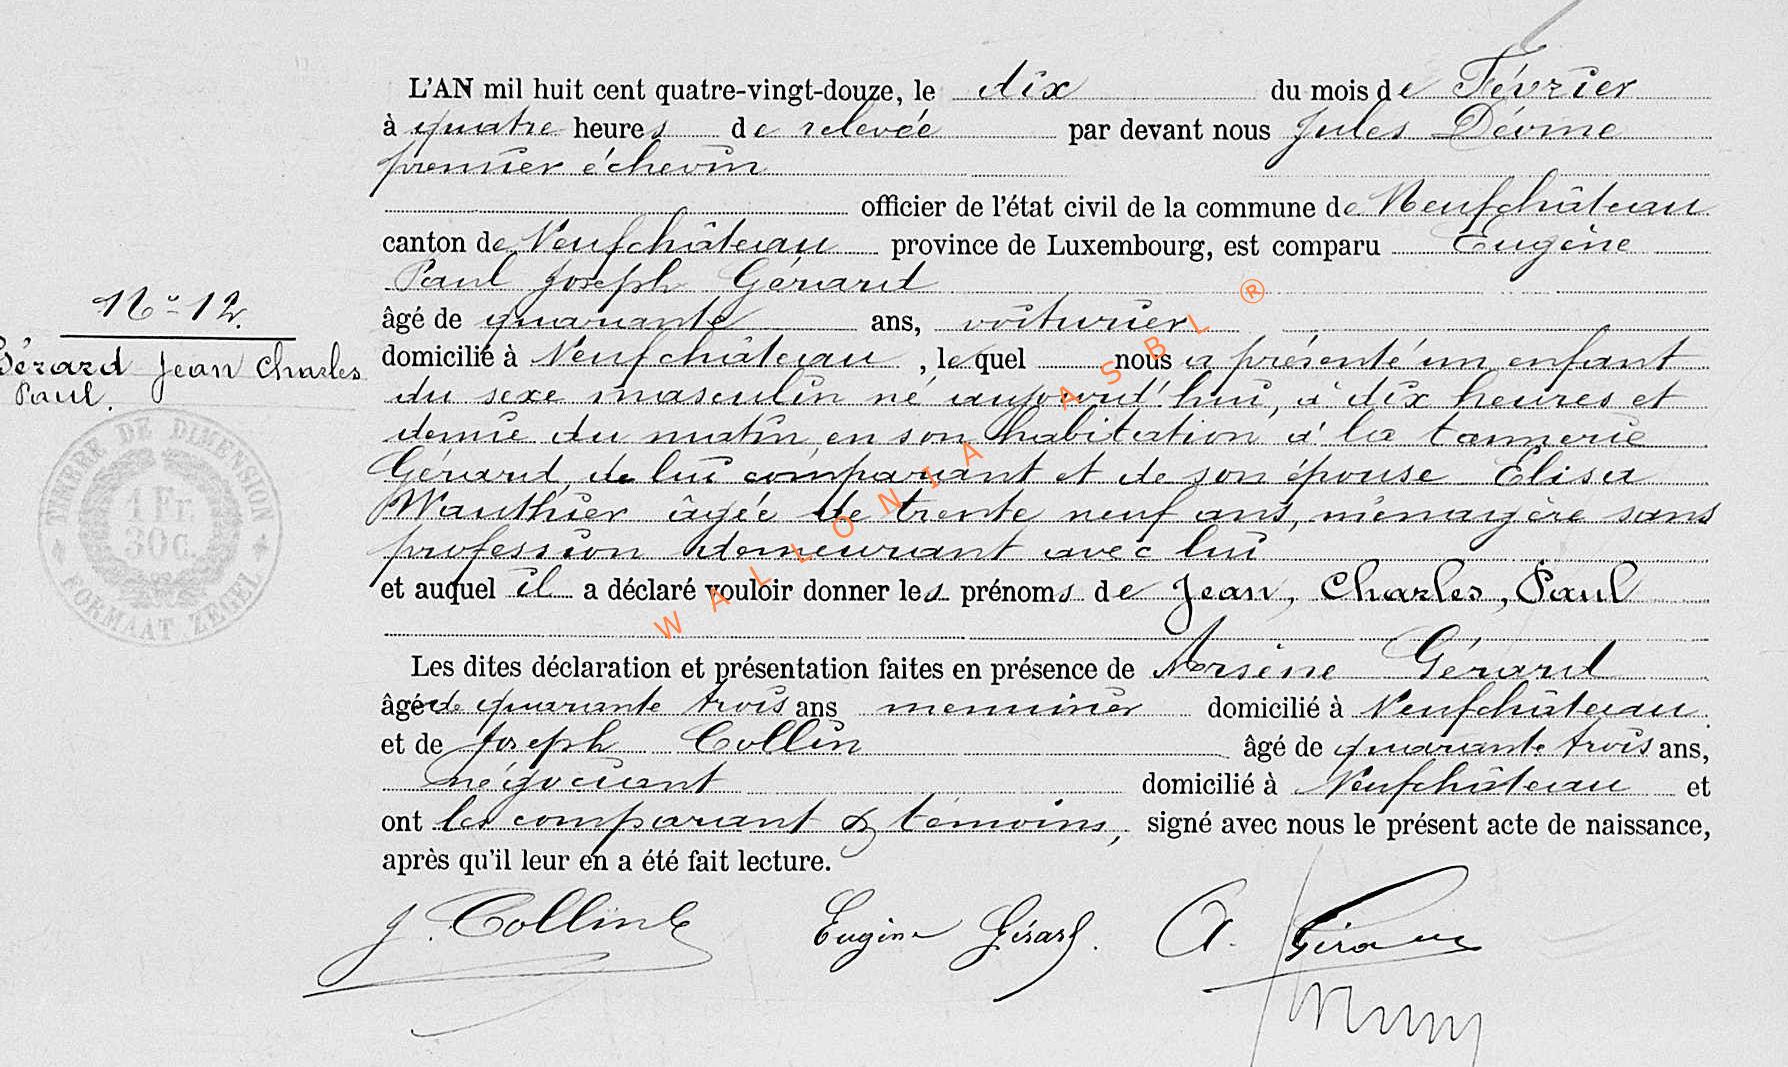 L'AN mil huit cent quatre-vingt-douze, le dix du mois de Février
à quatre heures de relevée par devant nous Jules Devine
premier échevin
officier de l'état civil de la commune de Neufchâteau
canton de Neufchâteau province de Luxembourg, est comparu Eugène
Paul Joseph Gérard
âgé de quarante ans, voiturier
domicilié à Neufchâteau, lequel nous a présenté un enfant
du sexe masculin né aujourd'hui, à dix heures et
demie du matin en son habitation à la tannerie
Gérard, de lui comparant et de son épouse Elisa
Wauthier âgée de trente neuf ans, ménagère sans
profession demeurant avec lui
et auquel il a déclaré vouloir donner les prénoms de Jean, Charles, Paul
Les dites déclaration et présentation faites en présence de Arsène Gérard
âgé de quarante trois ans menuisier domicilié à Neufchâteau
et de Joseph Collin âgé de quarante trois ans,
négociant domicilié à Neufchâteau et
ont les comparant & témoins, signé avec nous le présent acte de naissance,
après qu'il leur en a été fait lecture.
J. Collin Eugène Gérard. A. Gérard
N° 12.
Gérard Jean Charles
Paul.
TIMBRE DE DIMENSION
1 Fr.
30 c.
FORMAAT ZEGEL
WALLONIA ASBL ®